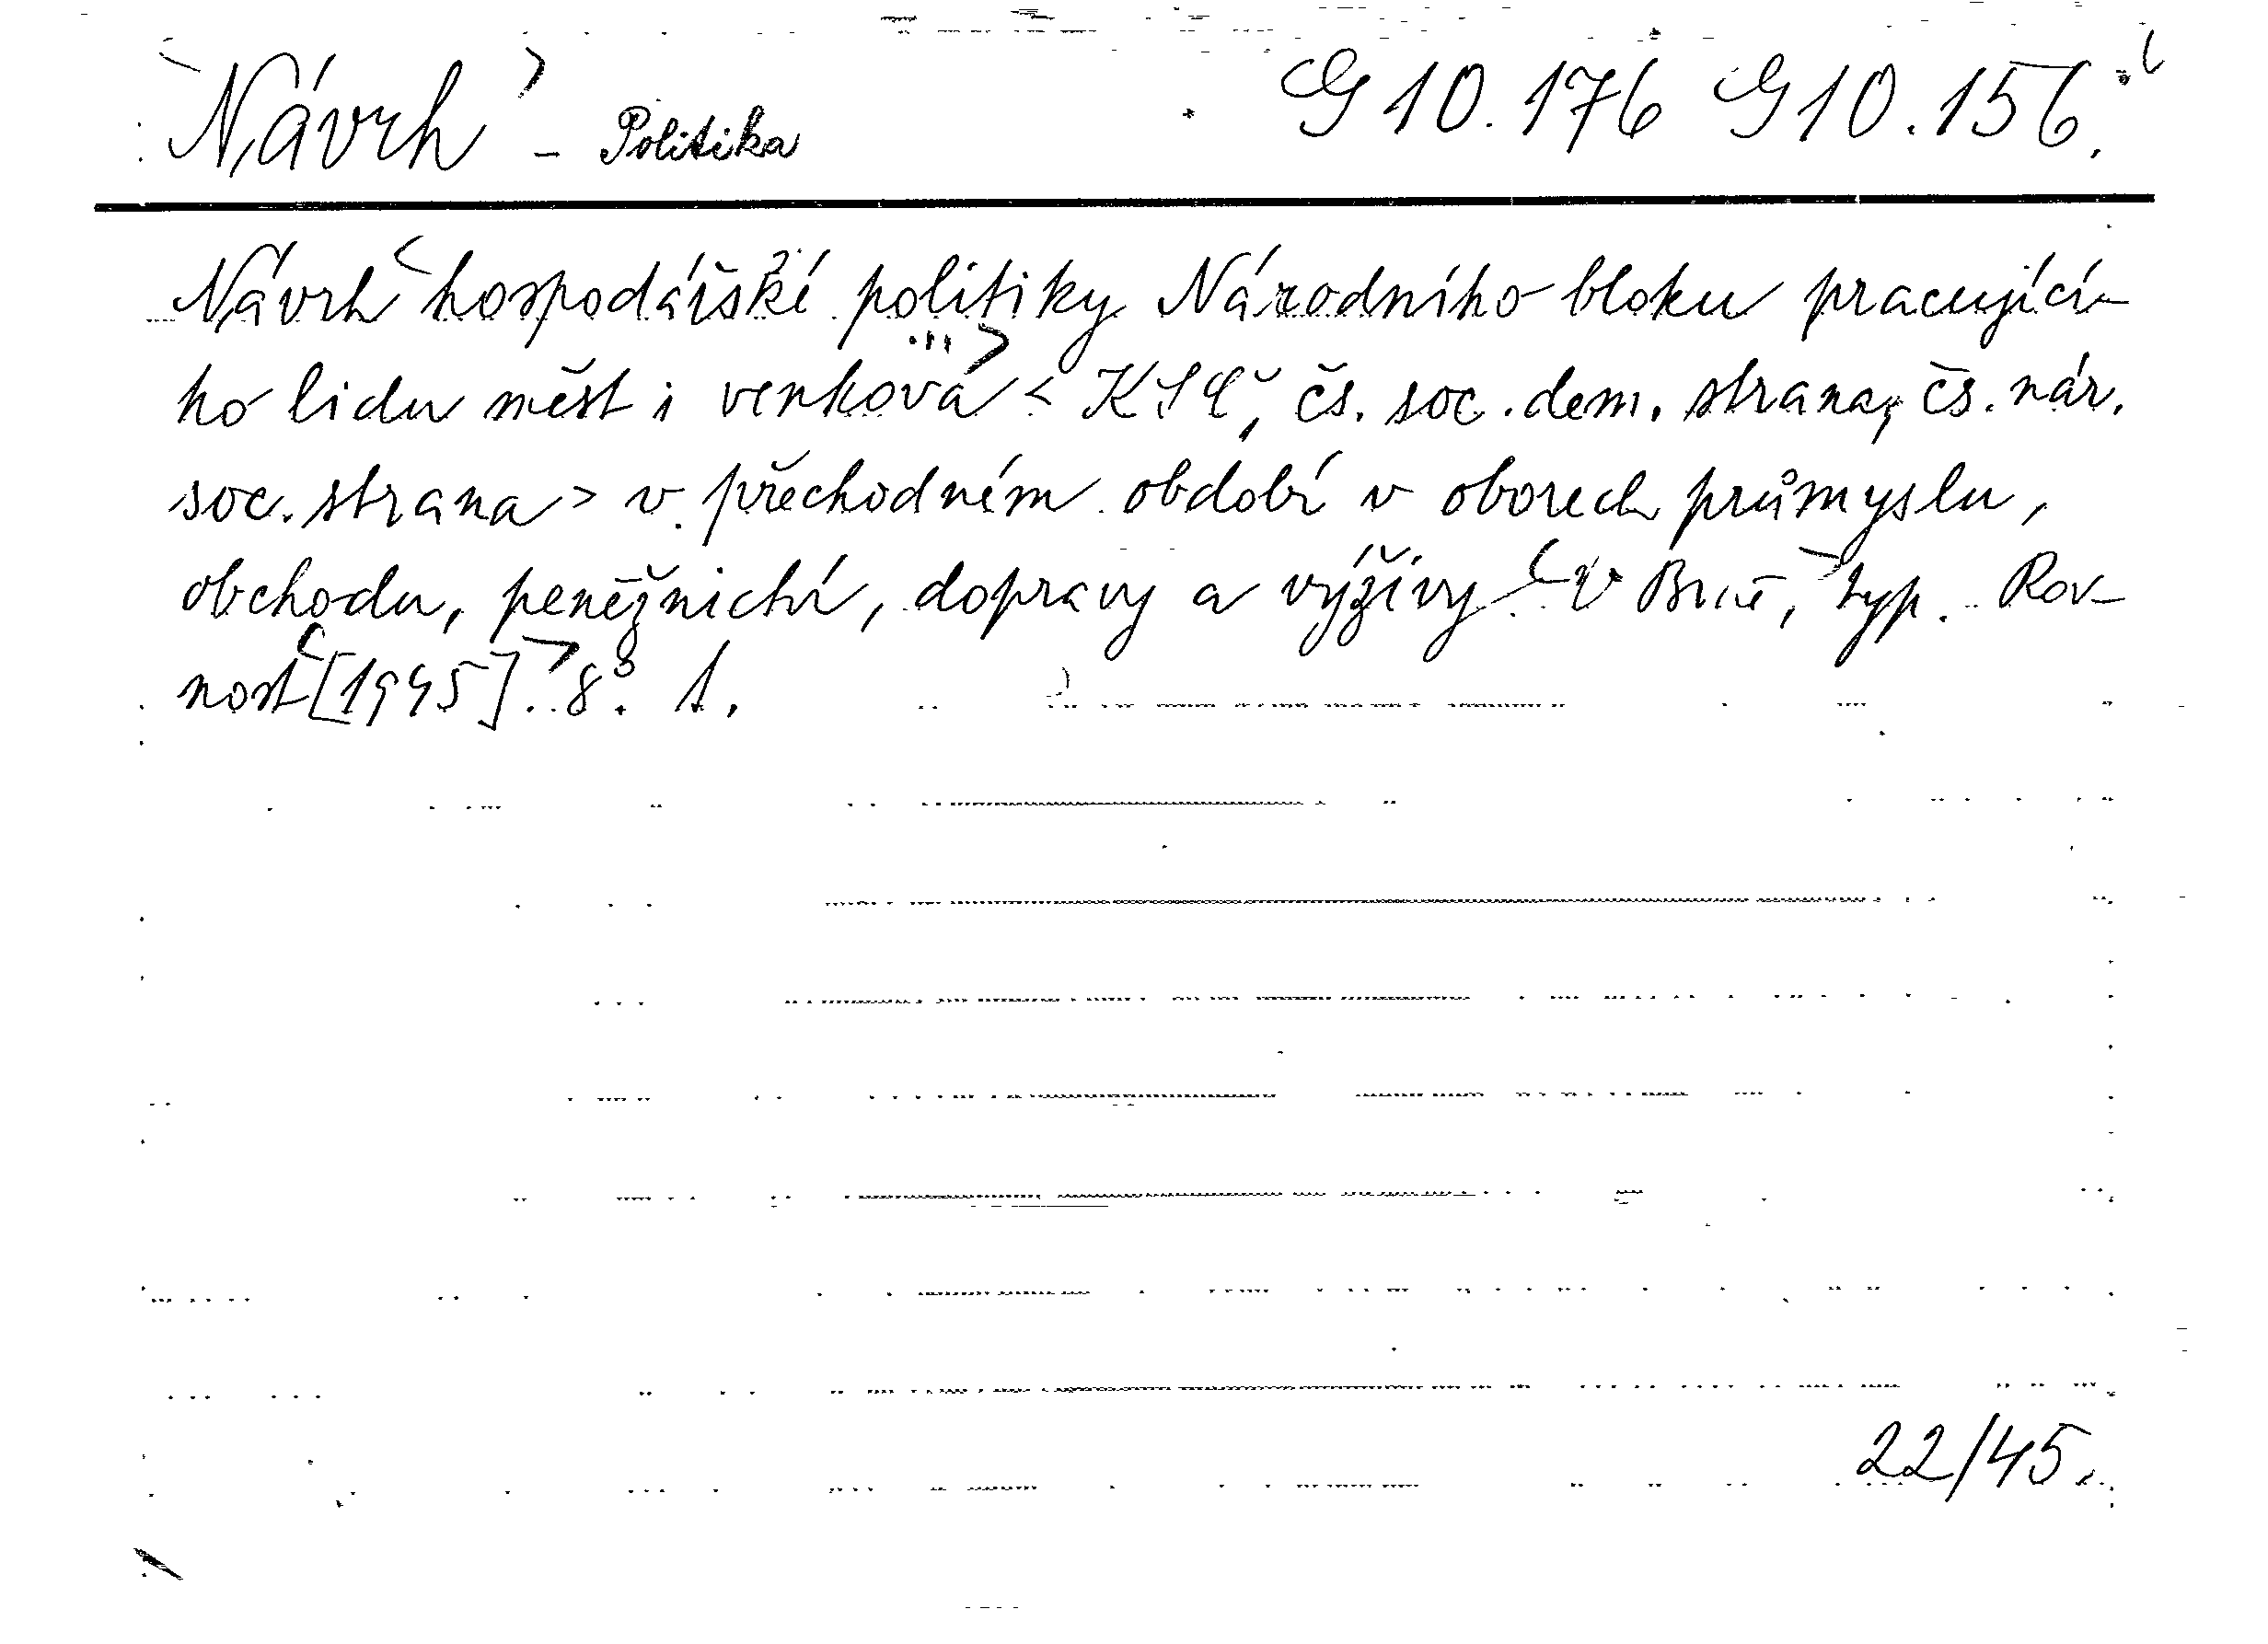 Návrh - Politika G 10.176 G 10.156.
Návrh hospodářské politiky Národního bloku pracující-
ho lidu měst i venkova < KSČ, čs. soc. dem. strana, čs. nár.
soc. strana > v přechodném období v oborech průmyslu,
obchodu, peněžnictví, dopravy a výživy. V Brně, typ. Rov-
nost [1945]. 8°. 1.
22/45.